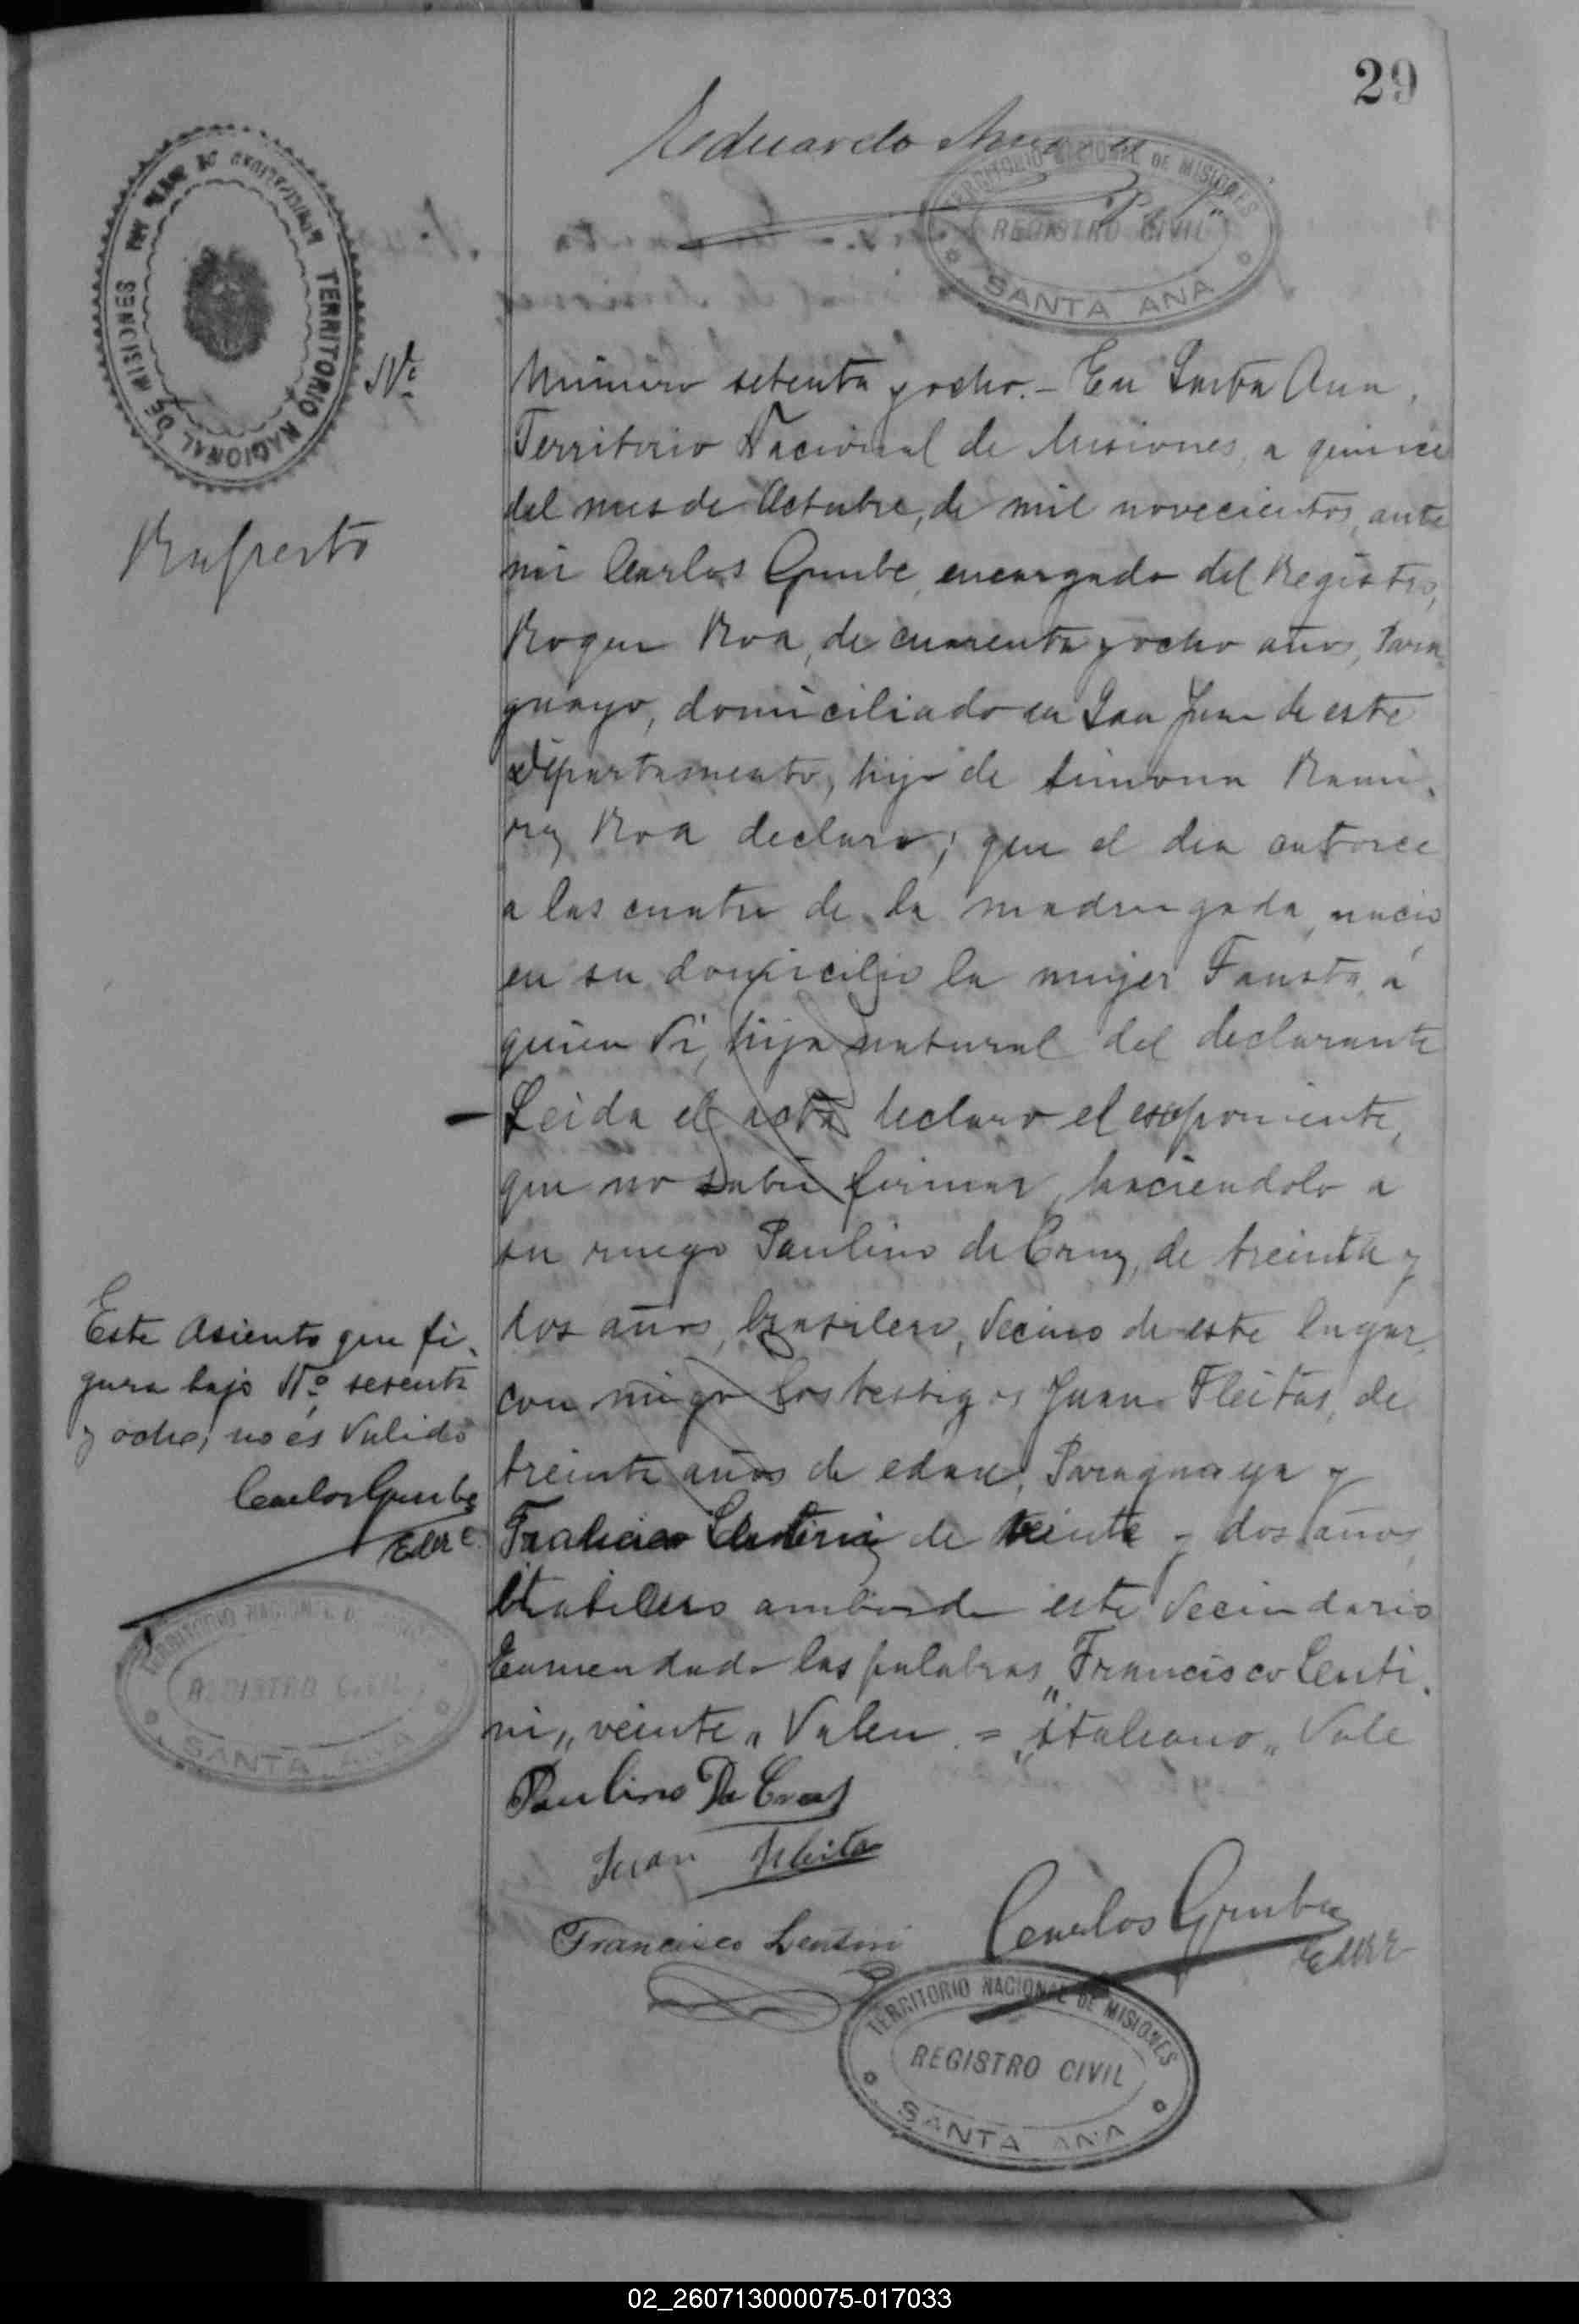 29
Eduardo
TERRITORIO NACIONAL DE MISIONES
REGISTRO CIVIL
SANTA ANA
TERRITORIO NACIONAL DE MISIONES
Nº
Numero setenta y ocho. – En Santa Ana,
Territorio Nacional de Misiones, a quince
del mes de Octubre, de mil novecientos, ante
mi Carlos Grube, encargado del Registro,
Roque Roa, de cuarenta y ocho años, Para-
guayo, domiciliado en San Juan de este
Departamento, hijo de Simona Rami-
rez Roa declaro; que el dia catorce
a las cuatro de la madrugada, nacio
en su domicilio la mujer Fausta, á
quien vi, hija natural del declarante
Leida el acta declaro el exponente,
que no sabia firmar, haciendolo a
su ruego Paulino de Cruz, de treinta y
dos años, brasilero, vecino de este lugar,
con migo los testigos Juan Fleitas, de
treinta años de edad, Paraguaya y
Francisco Lentini, de veinte y dos años,
ambos de este vecindario
Enmendado las palabras „Francisco Lenti-
ni„ veinte„ Valen. = „italiano„ Vale
Este asiento que fi-
gura bajo Nº setenta
y ocho, no és valido
Carlos Grube
TERRITORIO NACIONAL DE MISIONES
REGISTRO CIVIL
SANTA ANA
Paulino Da Cruz
Juan Fleita
Francisco Lentini
Carlos Grube
TERRITORIO NACIONAL DE MISIONES
REGISTRO CIVIL
SANTA ANA
02_260713000075-017033